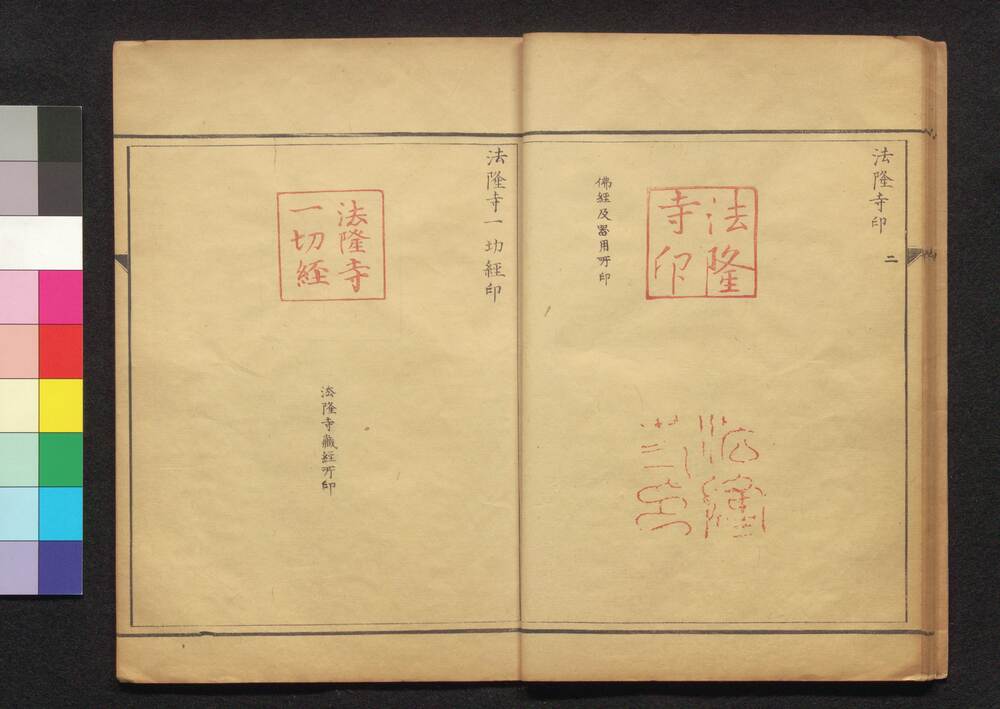 法隆寺印
二
法隆
寺印
佛経及器用所印
法隆寺一切經印
法隆寺
一切経
法隆寺藏經所印